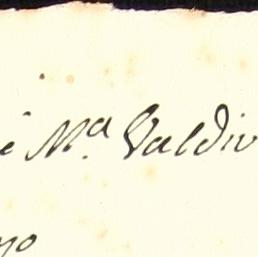 é Mª. Valdiv
no